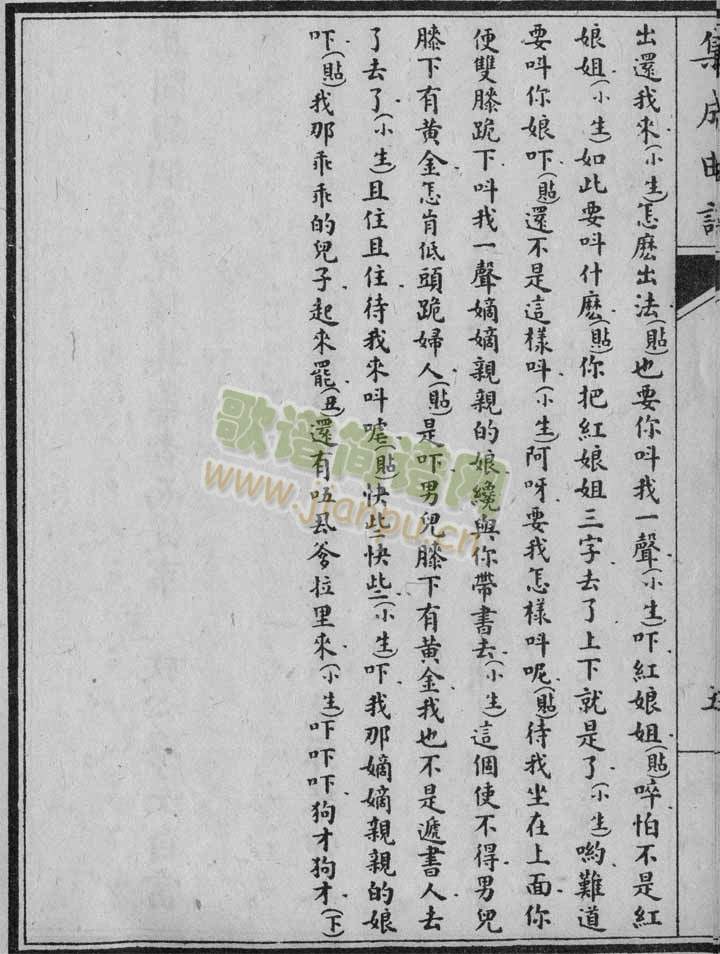 集成曲譜
五
出還我來(小生)怎麽出法(貼)也要你呌我一聲(小生)吓紅娘姐(貼)啐怕不是紅
娘姐(小生)如此要呌什麽(貼)你把紅娘姐三字去了上下就是了(小生)喲難道
要呌你娘吓(貼)還不是這樣呌(小生)阿呀要我怎樣呌呢(貼)待我坐在上面你
便雙膝跪下呌我一聲嫡嫡親親的娘纔與你帶書去(小生)這個使不得男兒
膝下有黃金怎肯低頭跪婦人(貼)是吓男兒膝下有黃金我也不是遞書人去
了去了(小生)且住且住待我來呌嘘(貼)快些快些(小生)吓我那嫡嫡親親的娘
吓(貼)我那乖乖的兒子起來罷(丑)還有爹拉里來(小生)吓吓吓狗才狗才(下)
歌谱简谱网
www.jianpu.cn